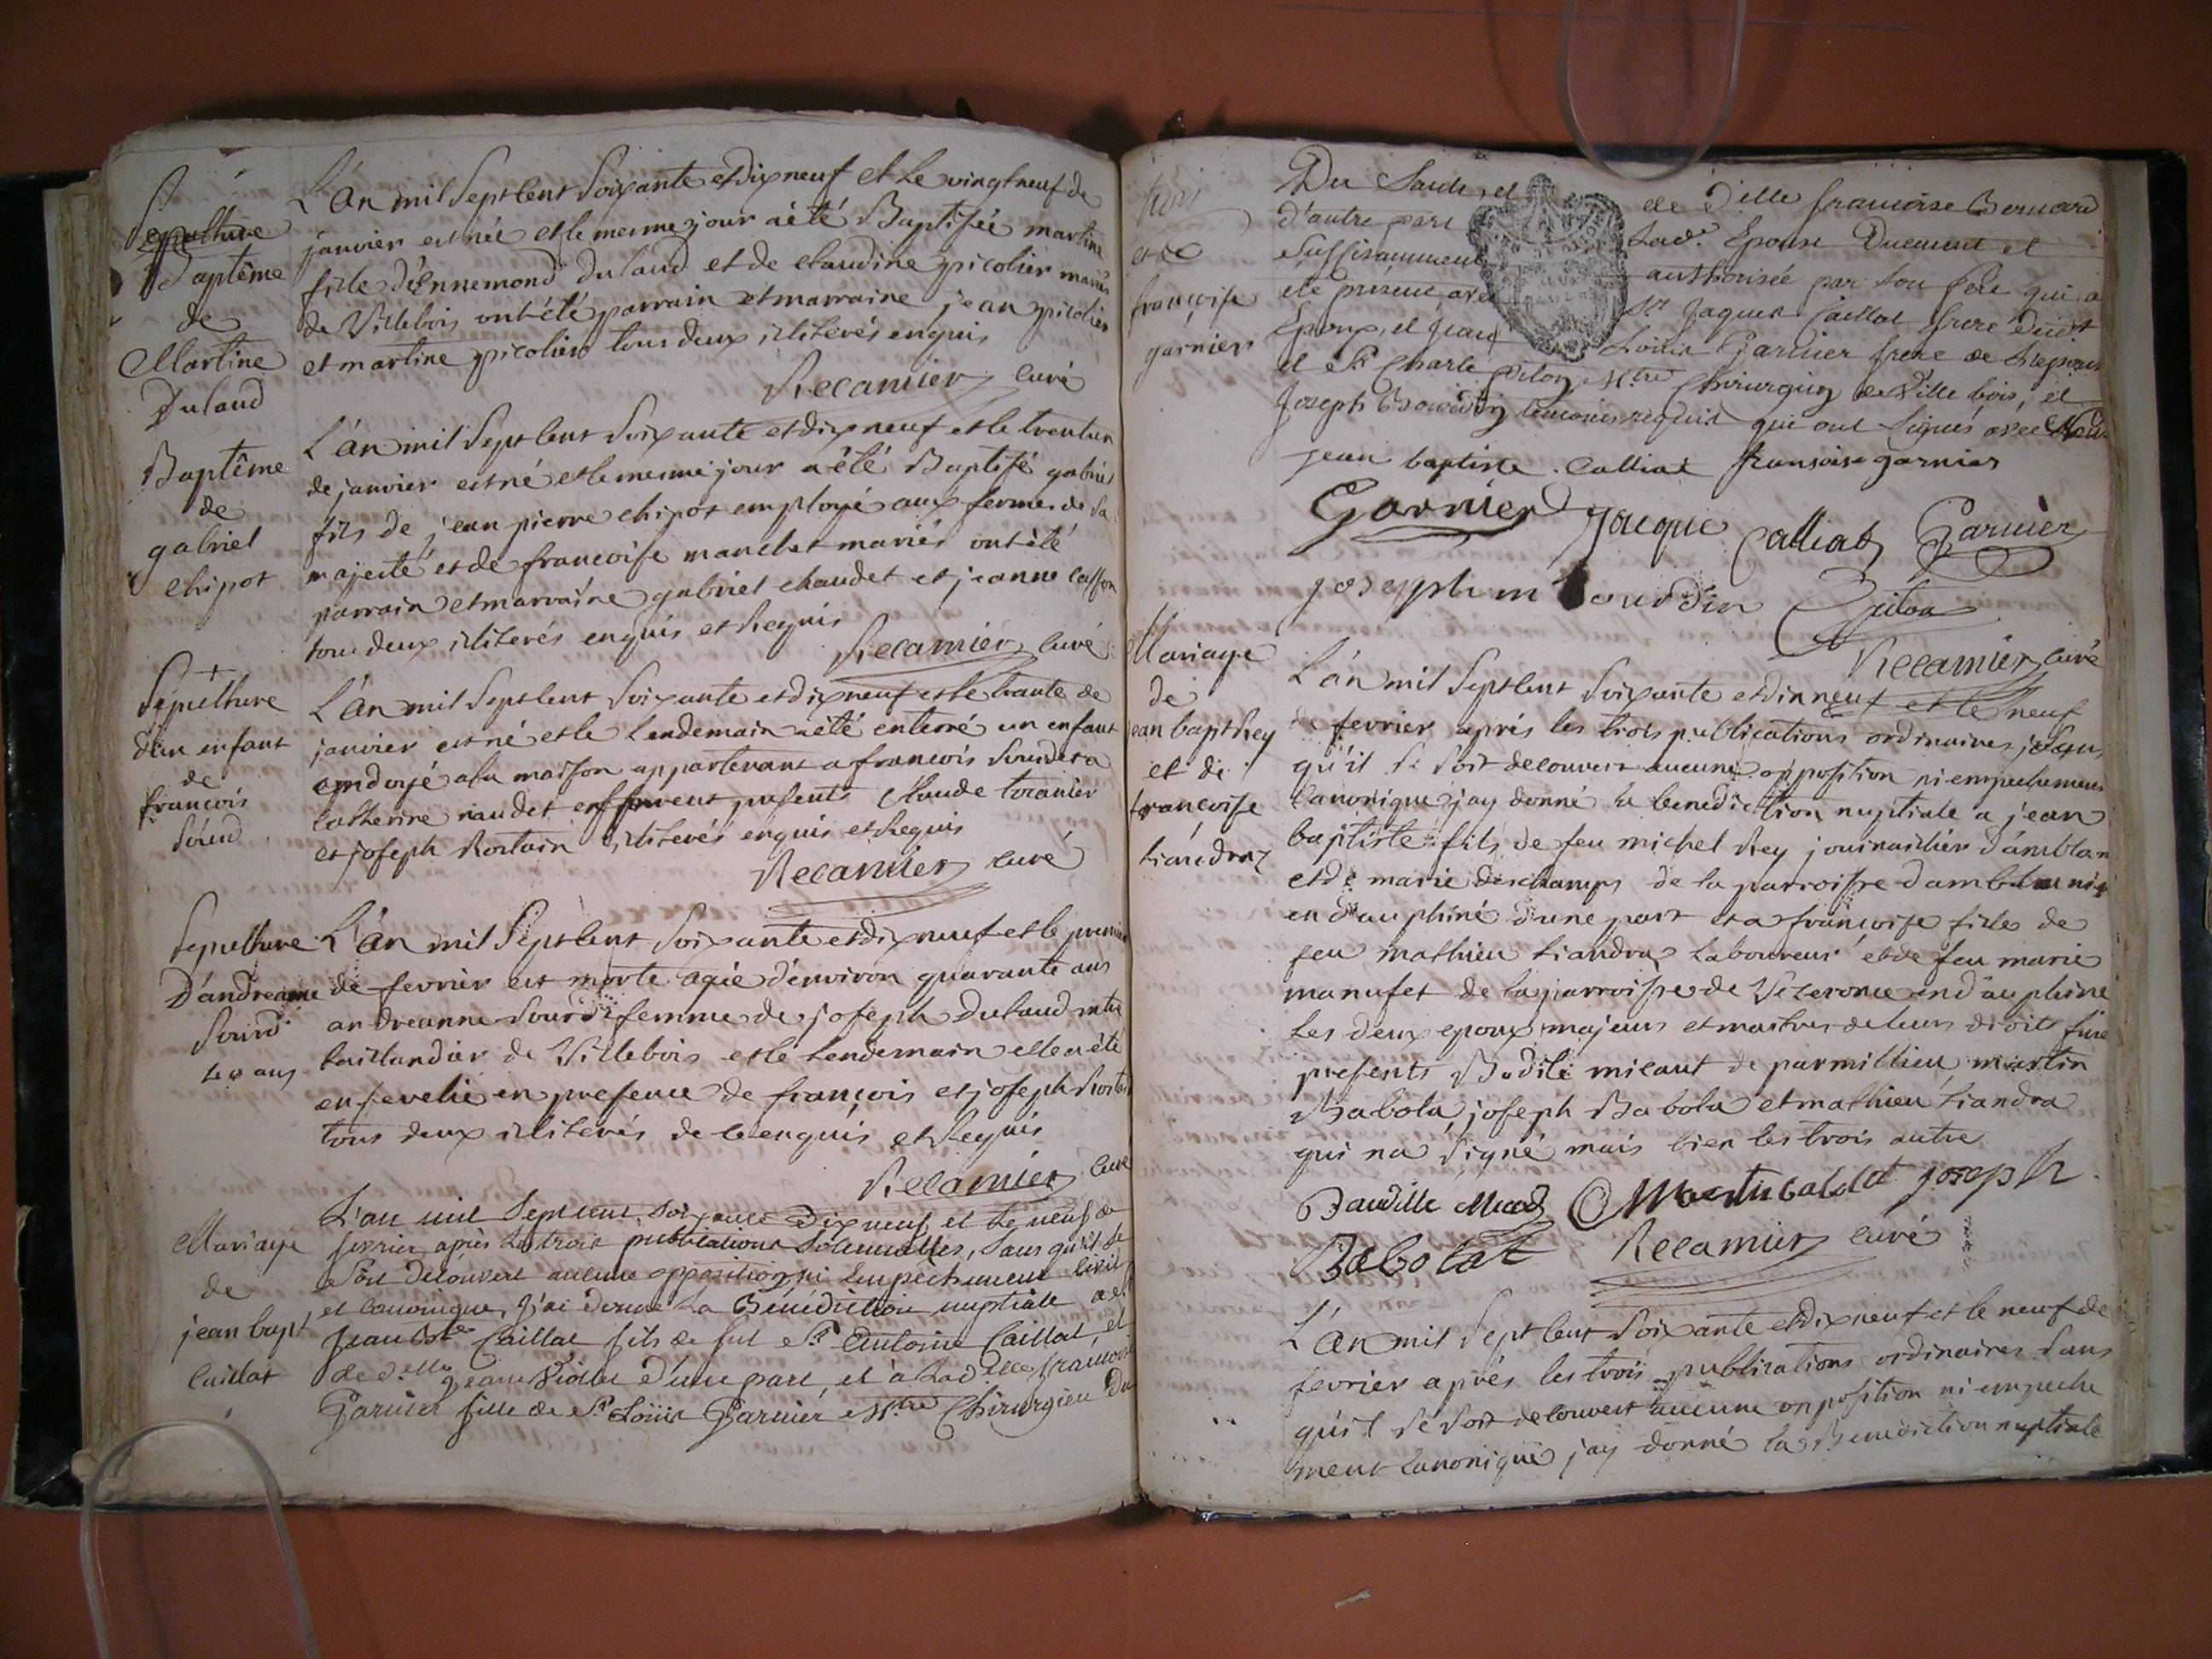 Sepulture
Baptême
de
Martine
Dulaud
L'an mil Sept Cent Soixante et dix neuf et Le vingt neuf de
janvier est née et le mesme jour a été Baptisée martine
fille d'Ennemond Dulaud et de Claudine picolier mariés
de Villebois ont été parrain et marraine jean picolier
et martine picolier tous deux illiterés enquis
Recamier curé
Baptême
de
gabriel
chipot
L'an mil Sept Cent Soixante et dix neuf et le trentun
de janvier est né et le mesme jour a été Baptisé gabriel
fils de jean pierre chipot employé aux fermes de Sa
majesté et de francoise manchet mariés ont été
parrain et marraine gabriel chaudet et jeanne
tous deux illiterés enquis et Requis
Recamier curé
Sépulture
d'un enfant
de
francois
Sourd
L'an mil Sept Cent Soixante et dix neuf et le trante de
janvier est né et le Lendemain a été enterré un enfant
ondoyé a la maison appartenant a francois Sourd et a
Catherine naudet en furent presents Claude
et joseph Rostain illiterés enquis et Requis
Recamier curé
Sepulture
D'andreanne
Sourd
40 ans
L'an mil Sept Cent Soixante et dix neuf et le premier
de fevrier est morte agée d'environ quarante ans
andreanne Sourd femme de joseph Dulaud mtre
taillandier de Villebois et le Lendemain elle a été
ensevelie en presence de françois et joseph
tous deux illiterés de ce enquis et Requis
Recamier curé
Mariage
de
jean bapt
Caillat
L'an mil Sept cent Soixante Dix neuf et Le neuf de
fevrier après Les trois publications Solennelles, Sans qu'il se
Soit découvert aucune opposition ni Empechement Civil
et canonique, J'ai donné La Bénédiction nuptiale a Sr
Jean Bte Caillat fils de feu Sr Antoine Caillat, et
de d.elle jeanne d'une part, et à Lad.elle francoise
Garnier fille de Sr Loüis Garnier Mtre Chirurgien Du
trois
et de
françoise
garnier
Du Sault, et de D.elle francoise Bernard
d'autre part Lad.e Epouse Duement et
Suffisamment authorisée par Son père qui a
été présent, avec Sr Jaques Caillat frere dudt
Epoux, et Jean Loüis Garnier frere de L'epouse
et Sr Charle Pilon Mtre Chirurgien de Ville bois, et
Joseph témoins requis qui ont Signés avec
jean baptiste Calliat fransoise garnier
Garnier Jacque Calliat Garnier
joseph m bourdin Pilon
Recamier curé
Mariage
de
jean bapt Rey
et de
francoise
tiandraz
L'an mil Sept Cent Soixante et dix neuf et le neuf
de fevrier aprés les trois publications ordinaires Sans
qu'il Se Soit decouvert aucune opposition ni empechement
Canonique jay donné la benediction nuptiale a jean
baptiste fils de feu michel Rey
et de marie deschamps de la parroisse
en dauphiné d'une part et a françoise fille de
feu mathieu tiandraz Laboureur et de feu marie
manufet de la parroisse de Vézeronce en dauphine
Les deux epoux majeurs et maitres de leurs droits fure
presents Bodile micaut de parmillieu martin
Babola, joseph Babola et mathieu tiandra
qui na Signé mais bien les trois autre
Baudille joseph
Babolat Recamier curé
L'an mil Sept Cent Soixante et dix neuf et le neuf de
fevrier aprés les trois publications ordinaires Sans
qu'il Se Soit decouvert aucune opposition ni empeche
ment Canonique jay donné la Benediction nuptiale